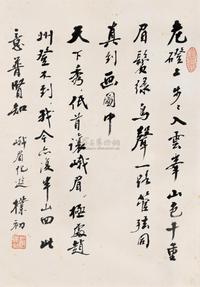 危磴上步步入雲峯山色千重
眉鬢綠鳥聲一路管弦同
真到画圖中
天下秀低首讓峨眉極處題
州登不到我今亦復半山回此
意普賢知
峨眉紀遊 樸初